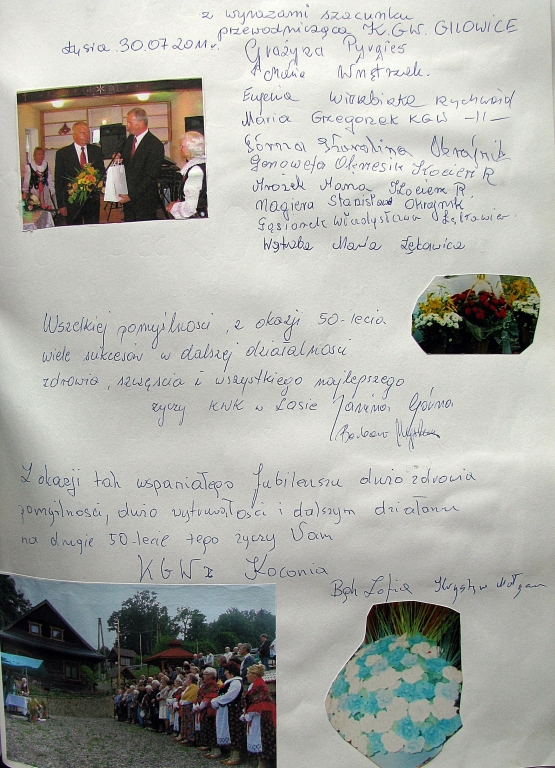 z wyrazami szacunku
przewodnicząca K.G.W. GILOWICE
Łysina 30.07.2011r. Grażyna Pyrgies
Maria Wnętrzak.
Eugenia Rychwałd
Maria Grzegorek KGW -II-
Górna Karolina Okrajnik
Genowefa Okrzesik Kocierz R
Mrożek Maria Kocierz R
Magiera Stanisława Okrajnik
Gąsiorek Władysława Łękawica
Wątroba Maria Łękawica
Wszelkiej pomyślności, z okazji 50-lecia
wiele sukcesów w dalszej działalności
zdrowia, szczęścia i wszystkiego najlepszego
życzy KWK w Łasie Janina Górna
Z okazji tak wspaniałego Jubileuszu dużo zdrowia
pomyślności, dużo wytrwałości i dalszym działaniu
na drugie 50-lecie tego życzy Wam
KGW z Koconia
Bąk Zofia Krystyna